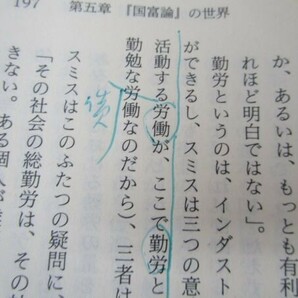 197　第五章　『国富論』の世界
か、あるいは、もっとも有利
れほど明白ではない」。
勤労というのは、インダスト
ができるし、スミスは三つの意
活動する労働が、ここで勤労と
勤勉な労働なのだから）、三者は
スミスはこのふたつの疑問に、
「その社会の総勤労は、その
きない。ある個人が